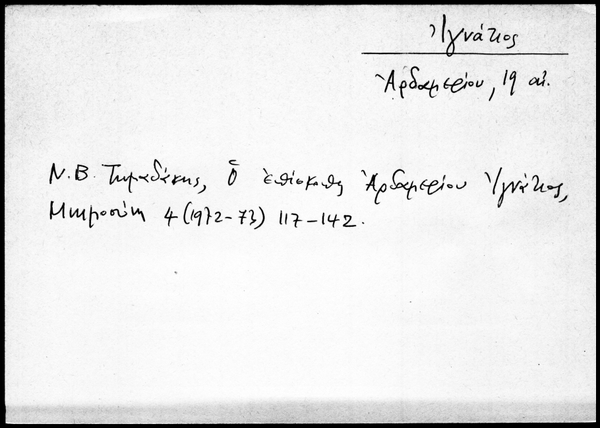 Ἰγνάτιος
Ἀρδαμερίου, 19 αἰ.
Ν. Β. Τωμαδάκης, Ὁ ἐπίσκοπος Ἀρδαμερίου Ἰγνάτιος,
Μνημοσύνη 4 (1972-73) 117-142.